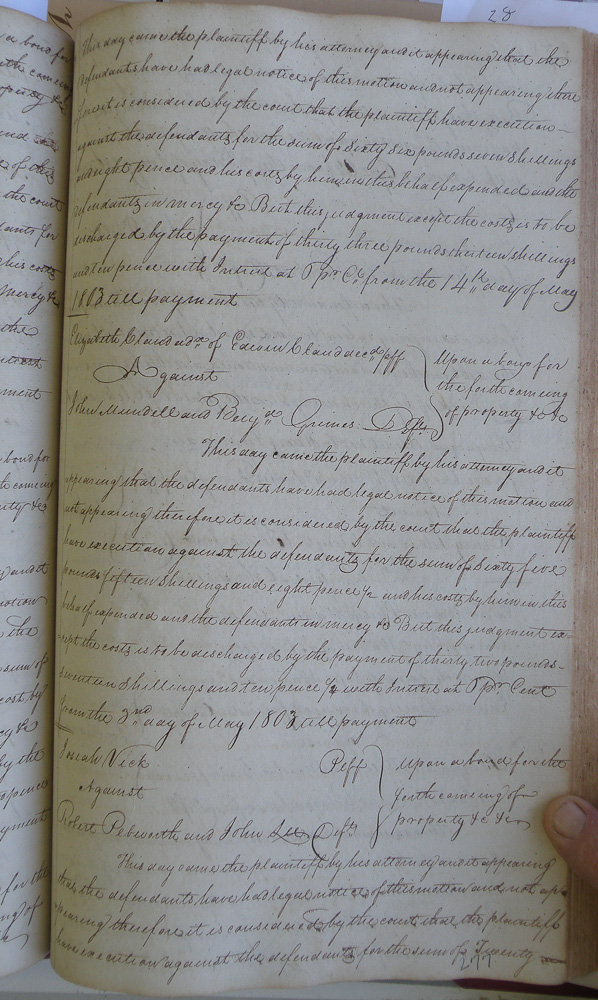 28
This day came the plaintiff by his attorney and it appearing that the
defendants have had legal notice of this motion and not appearing there
fore it is considered by the court that the plaintiff have execution
against the defendants for the sum of Sixty Six pounds seven Shillings
and eight pence and his costs by him in this behalf expended and the
defendants in mercy &c But this judgment except the costs is to be
discharged by the payment of thirty three pounds thirteen shillings
and ten pence with Interest at 5 pr. Ct. from the 14th day of May
1803 till payment
Elizabeth Claud adx. of Edwin Claud decd. Plff
Upon a bond for
Against
the forth coming
John Mundell and Benja. Grimes Defts
of property &c &c
This day came the plaintiff by his attorney and it
appearing that the defendants have had legal notice of this motion and
not appearing therefore it is considered by the court that the plaintiff
have execution against the defendants for the sum of Sixty five
pounds fifteen Shillings and eight pence 1/2 and his costs by him in this
behalf expended and the defendants in mercy &c But this judgment ex-
cept the costs is to be discharged by the payment of thirty two pounds
seventeen Shillings and ten pence 1/2 with Interest at 5 pr. Cent
from the 3rd day of May 1803 till payment
Josiah Vick Plff
Upon a bond for the
Against
forth coming of
Robert Pebworth and John Lee Defts
property &c &c
This day came the plaintiff by his attorney and it appearing
that the defendants have had legal notice of this motion and not ap-
pearing therefore it is considered by the court that the plaintiff
have execution against the defendants for the sum of Twenty